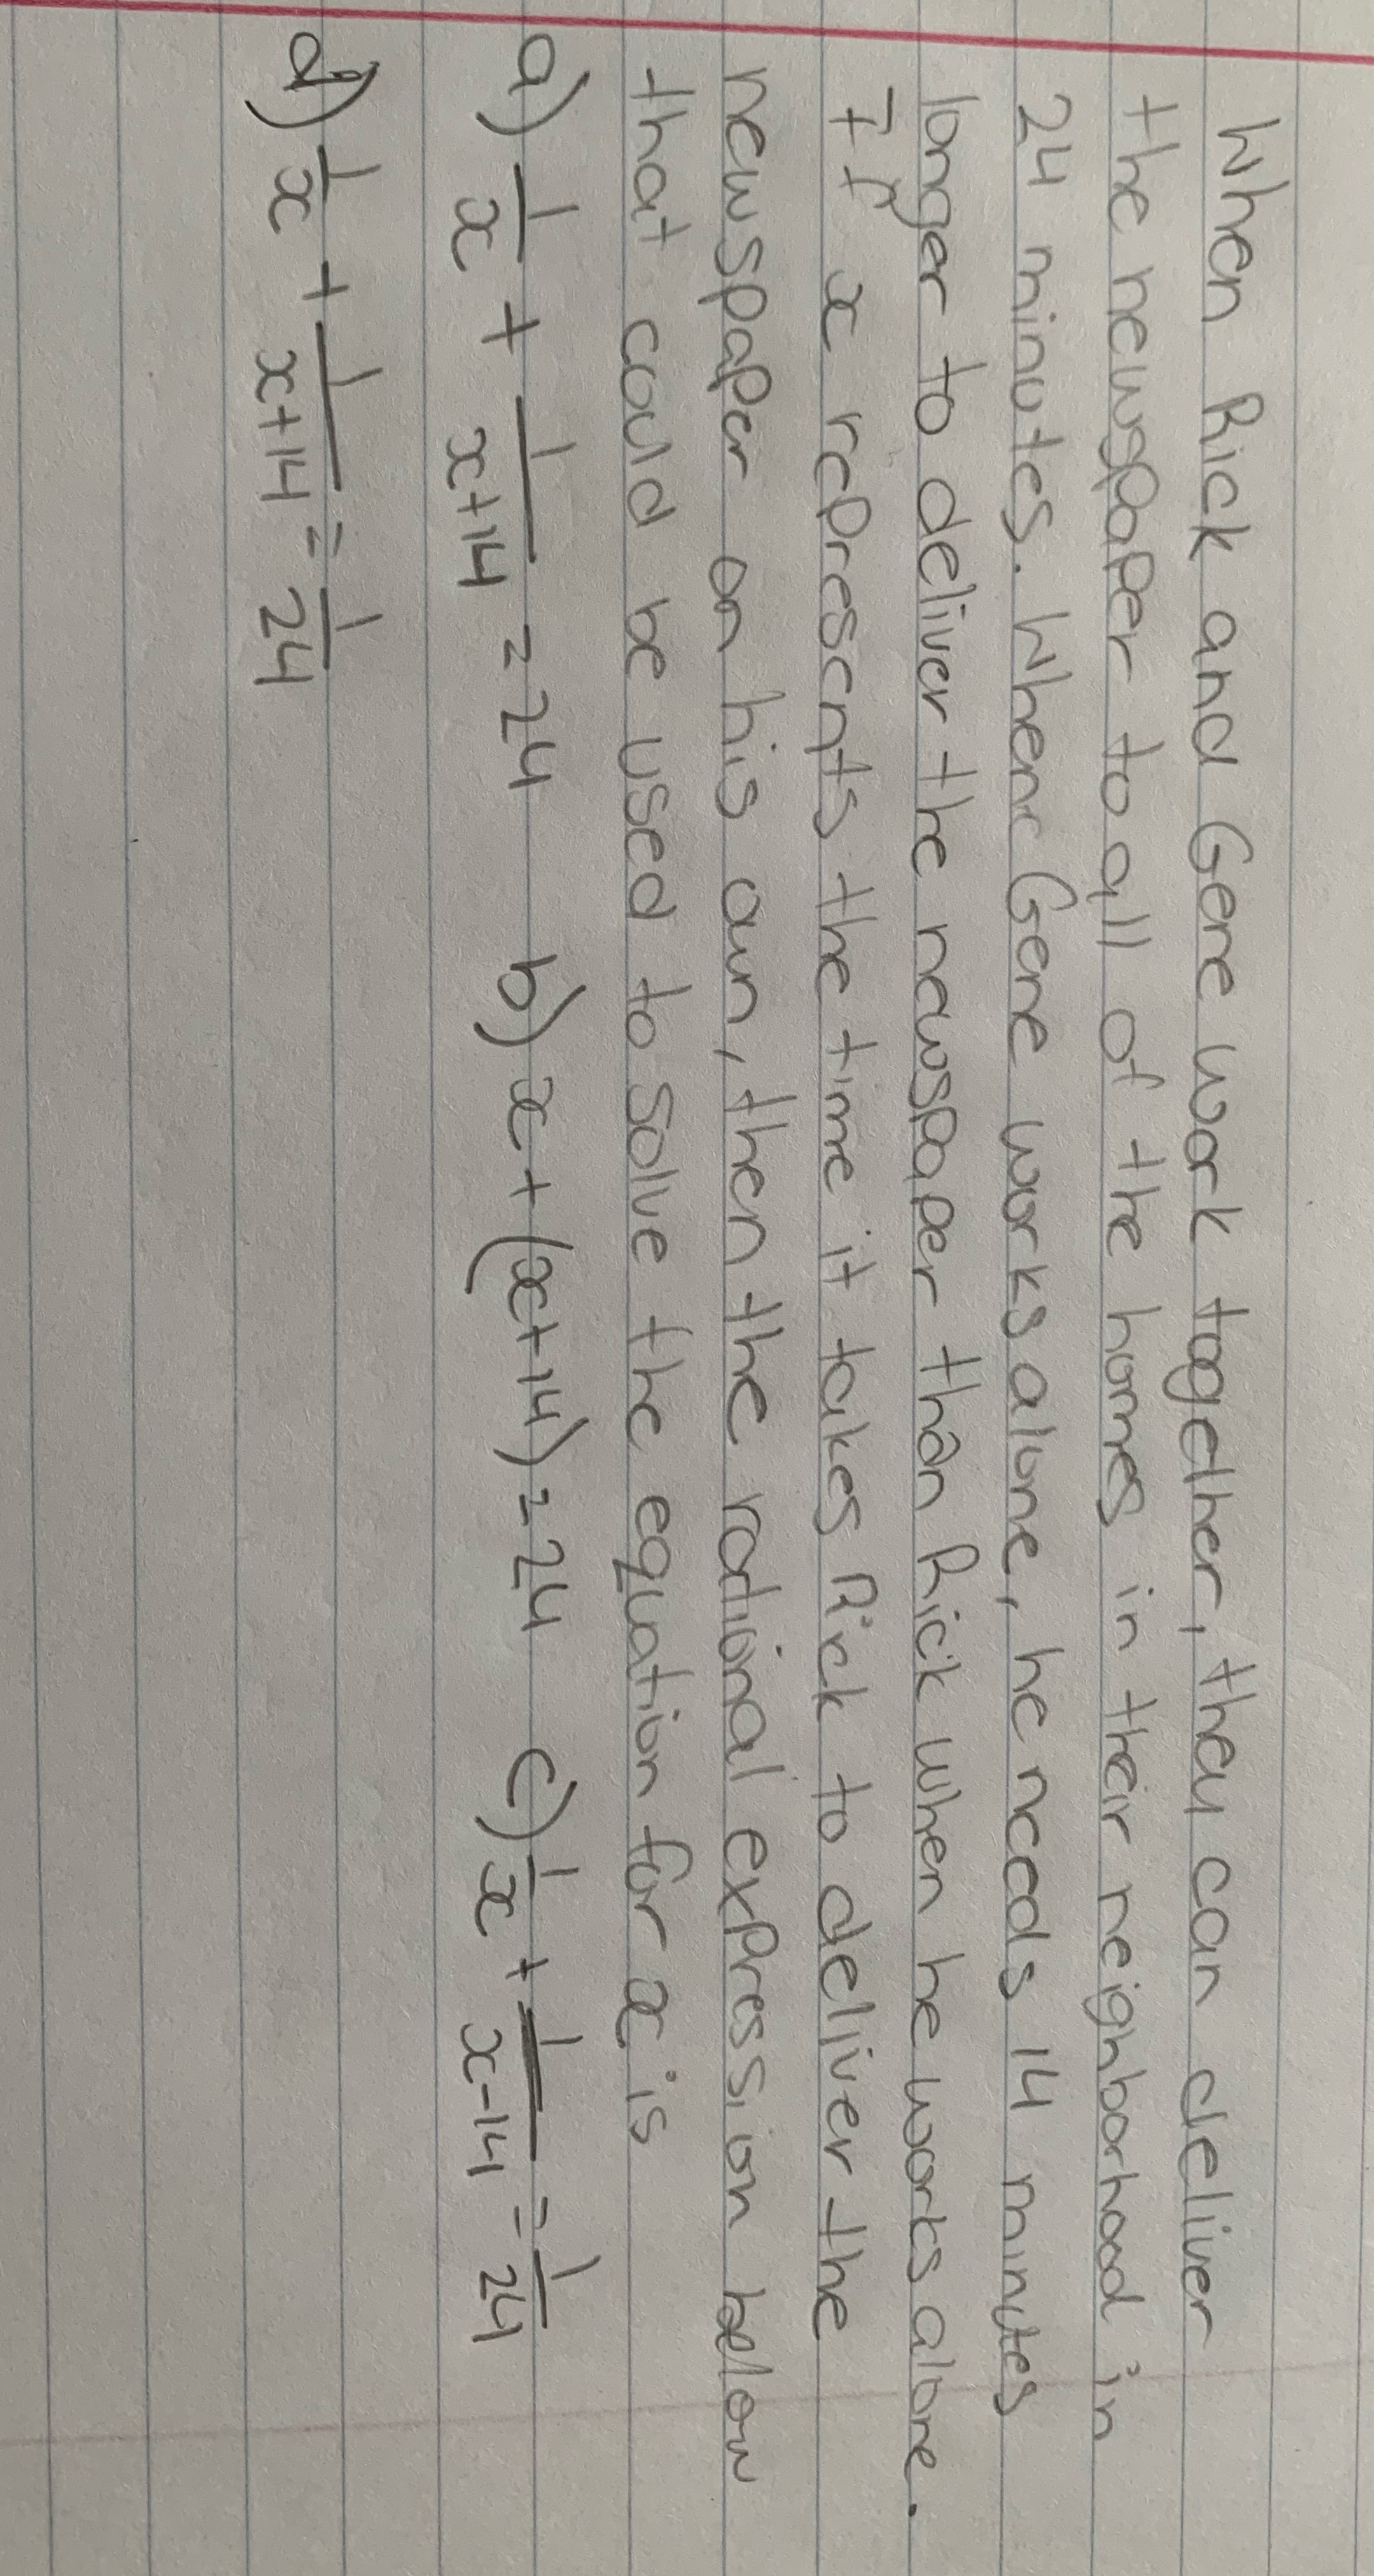 When Rick and Gene work together, they can deliver
the newspaper to all of the homes in their neighborhood in
24 minutes. When Gene works alone, he needs 14 minutes
longer to deliver the newspaper than Rick when he works alone.
If x represents the time it takes Rick to deliver the
newspaper on his own, then the rational expression below
that could be used to solve the equation for x is
a) 1/x + 1/(x+14) = 24 b) x + (x+14) = 24 c) 1/x + 1/(x-14) = 1/24
d) 1/x + 1/(x+14) = 1/24